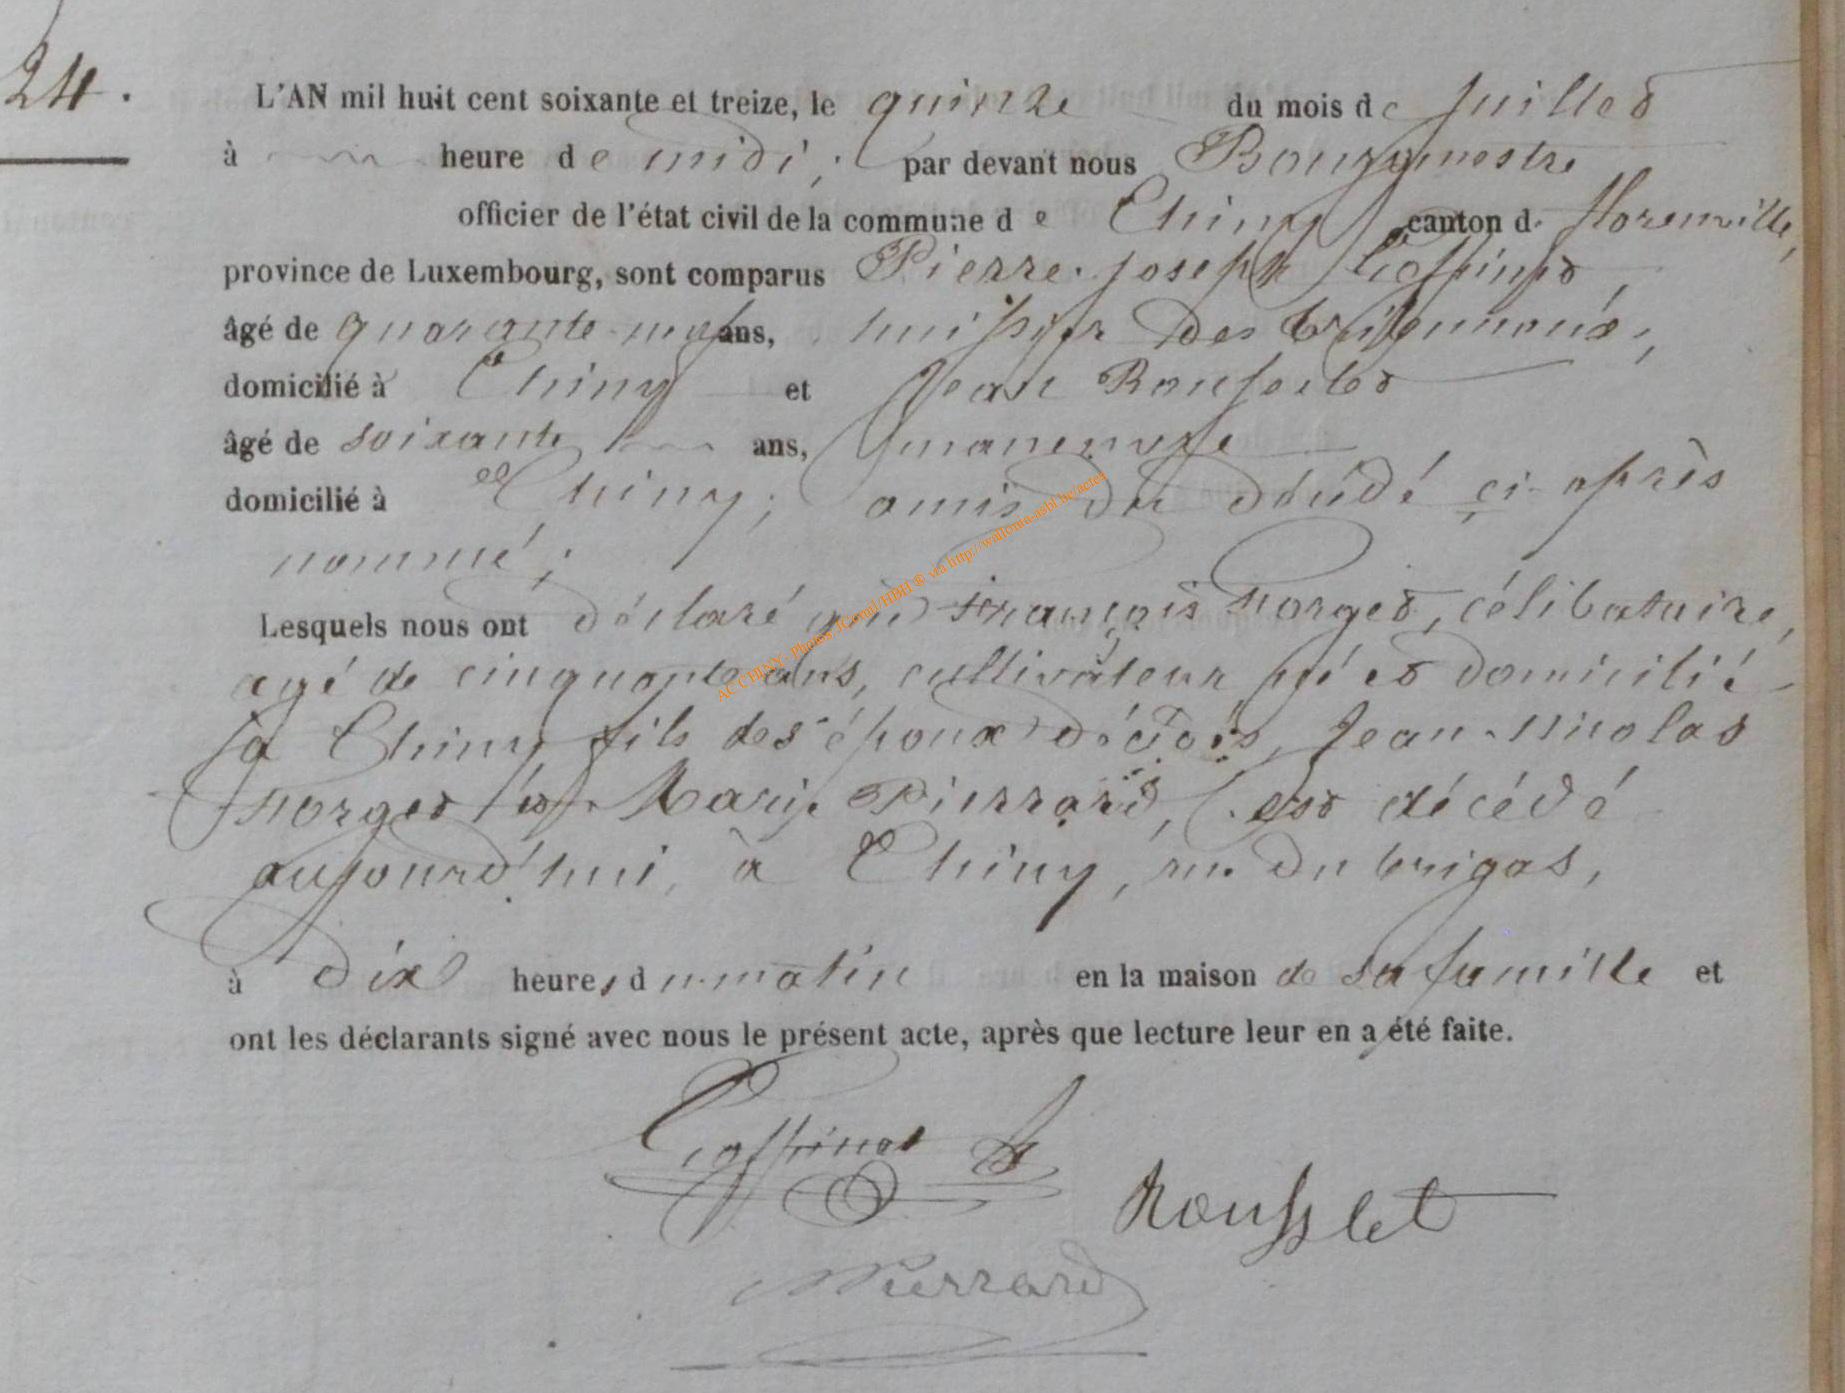 24.
L'AN mil huit cent soixante et treize, le quinze du mois de juillet
à heure de midi, par devant nous Bourgmestre
officier de l'état civil de la commune de Chiny canton de florenville,
province de Luxembourg, sont comparus Pierre-joseph Goffinet,
âgé de quarante-neuf ans, huissier des
domicilié à Chiny et Jean Rousselet
âgé de soixante ans, manoeuvre
domicilié à Chiny, amis du décédé ci-après
nommé;
Lesquels nous ont déclaré que françois Horget, célibataire,
agé de cinquante ans, cultivateur né et domicilié
à Chiny fils des époux décédés, Jean-Nicolas
Horget et Marie Pierrard, est décédé
aujourd'hui, à Chiny, rue du trigas,
à dix heures du matin en la maison de sa famille et
ont les déclarants signé avec nous le présent acte, après que lecture leur en a été faite.
Goffinet Rousslet
Pierrard
AC CHINY- Photos JCornil/HBH ® via http://wallonia-asbl.be/actes